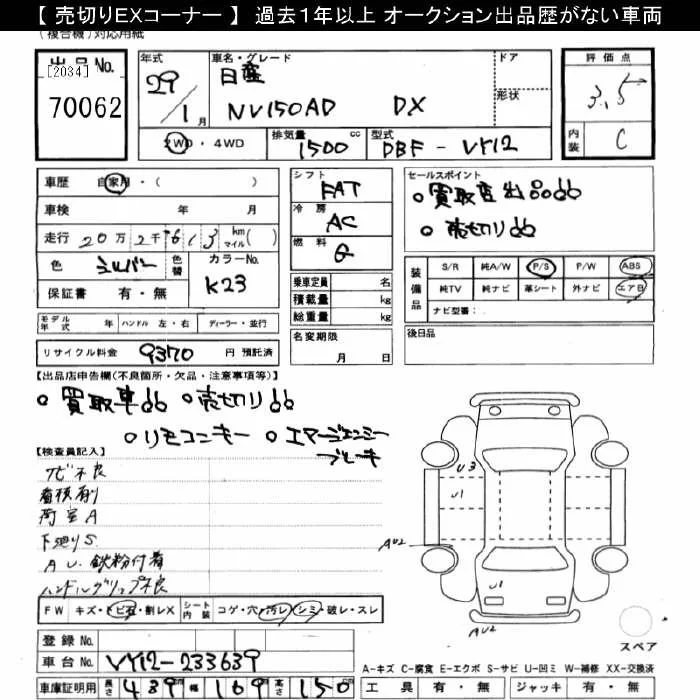 【 売切りEXコーナー 】 過去1年以上 オークション出品歴がない車両
(複合機)対応用紙
出品No.
[2034]
70062
年式
29/1月
車名・グレード
日産
NV150AD DX
ドア
形状
評価点
3.5
内装
C
2WD・4WD
排気量
1500 cc
型式
DBF-VY12
車歴 自家用・( )
車検 年 月
走行 20万2千613 km マイル( )
色 シルバー 色替 カラーNo.
K23
保証書 有・無
シフト
FAT
冷房
AC
燃料
G
乗車定員 名
積載量 kg
総重量 kg
セールスポイント
○買取車出品
○売切り
装備品
S/R 純A/W P/S P/W ABS
純TV 純ナビ 革シート 外ナビ エアB
ナビ型番:
モデル年式 年 ハンドル 左・右 ディーラー・並行
リサイクル料金 9370 円 預託済
名変期限
月 日
後日品
【出品店申告欄(不良箇所・欠品・注意事項等)】
○買取車 ○売切り
○リモコンキー ○エマージェンシーブレーキ
【検査員記入】
サビ不良
荷室A
下廻りS
AU 鉄粉付着
ハンドルグリップ不良
U3
U1
AU2
U1
AU2
スペア
FW キズ・トビ石・割レX シート内装 コゲ・穴・汚レ・シミ・破レ・スレ
登録No.
車台No. VY12-233639
車庫証明用 長さ 439 幅 169 高さ 150
A-キズ C-腐食 E-エクボ S-サビ U-凹ミ W-補修 XX-交換済
工具 有・無 ジャッキ 有・無